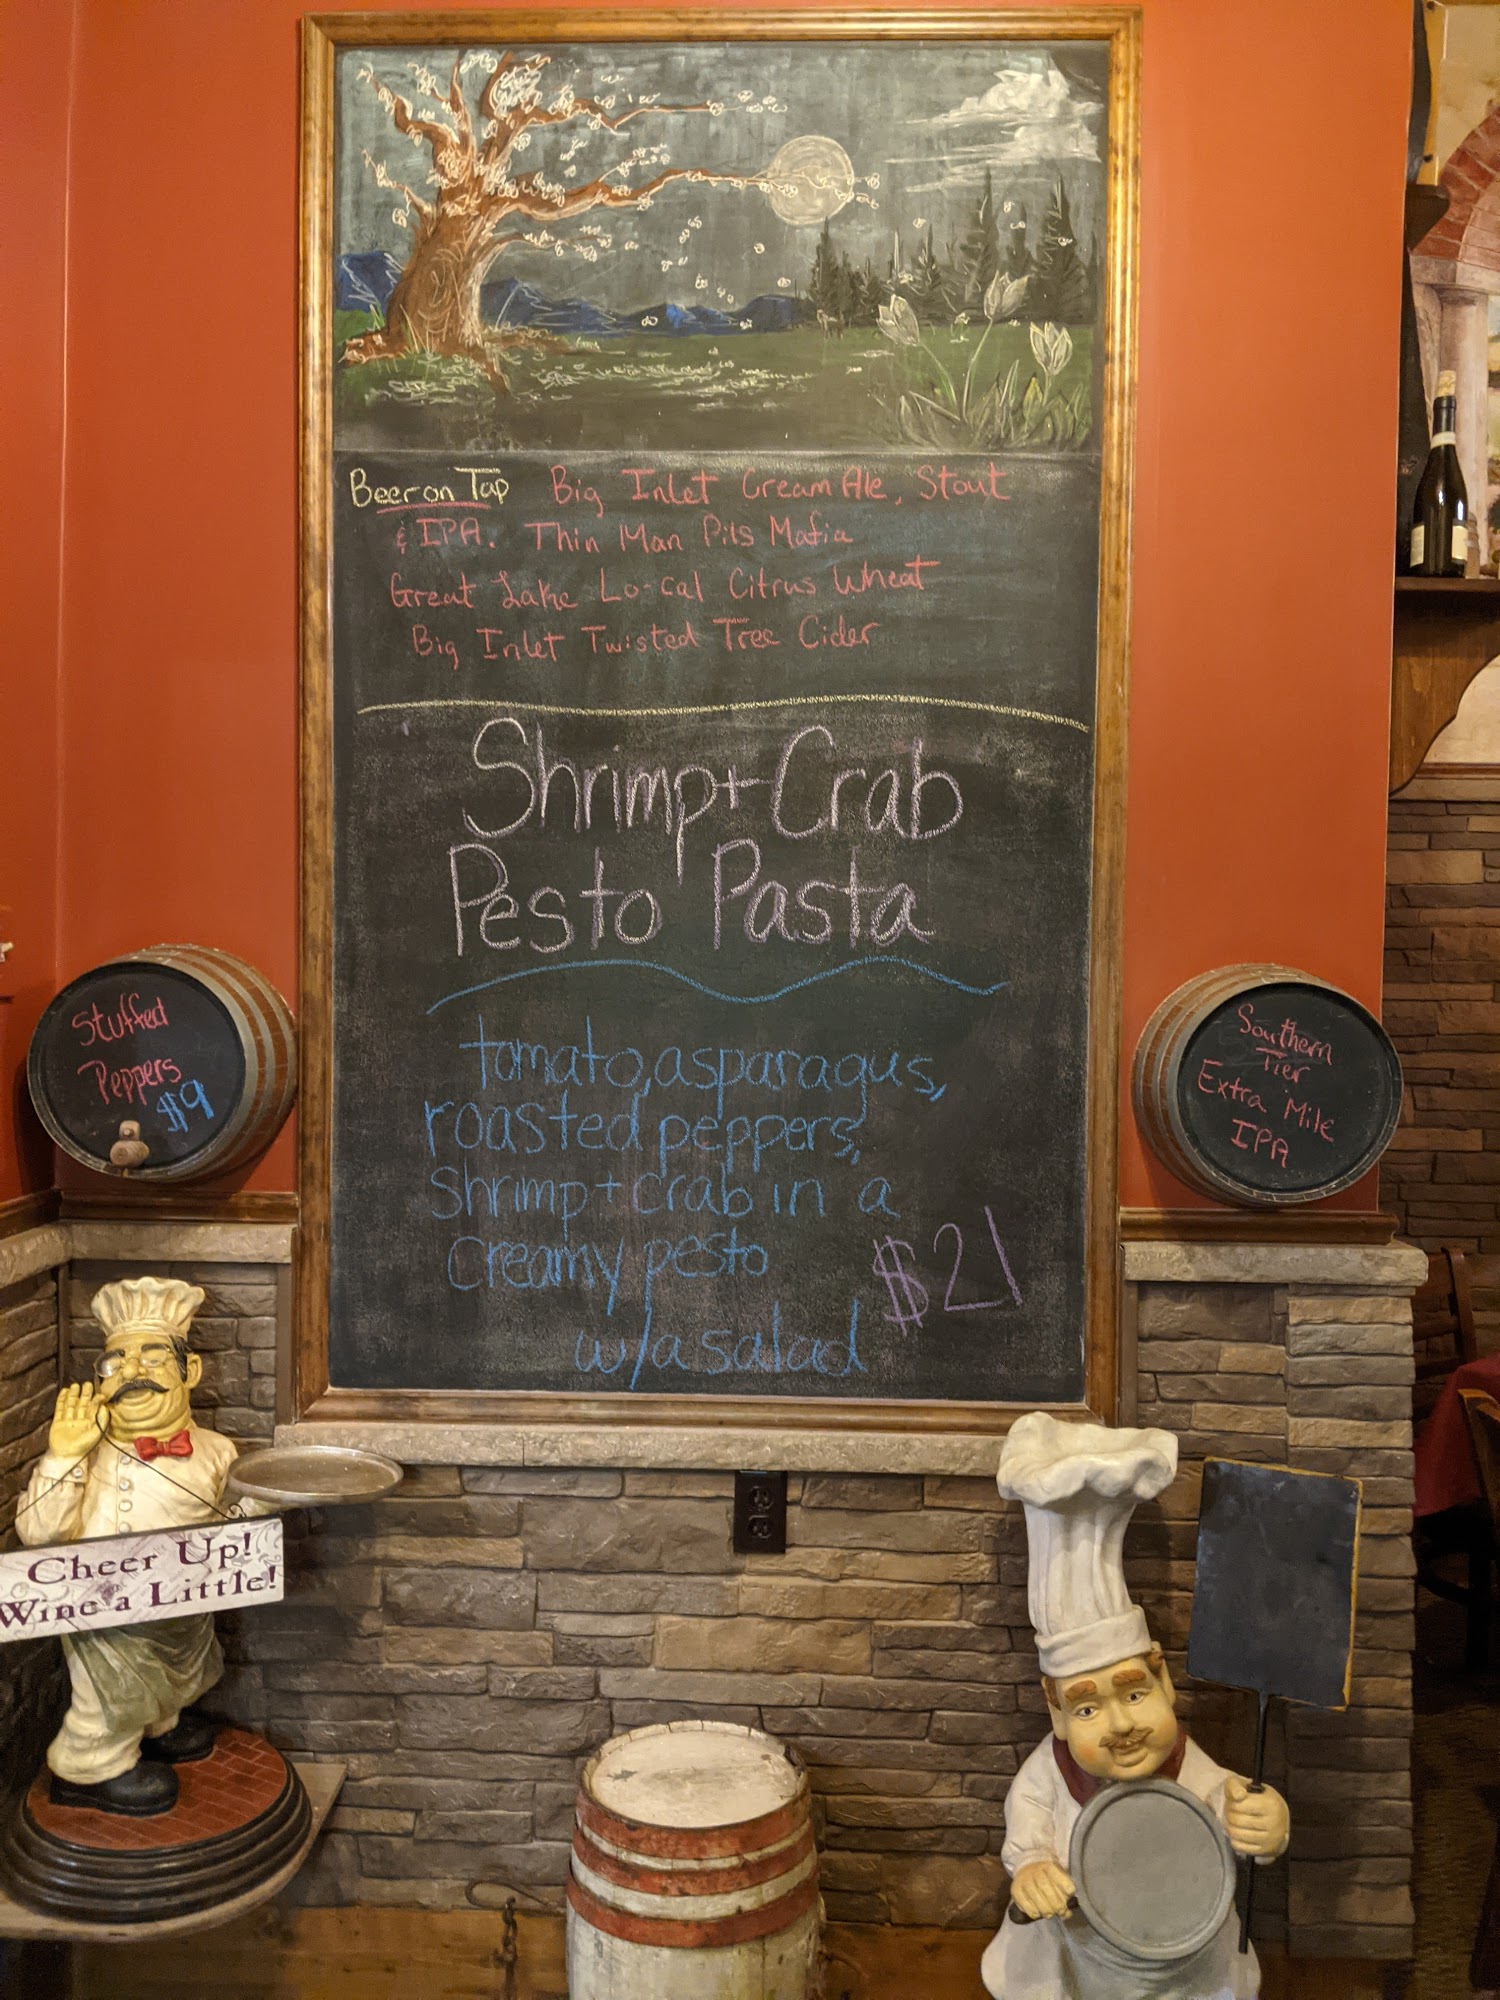 Beer on Tap Big Inlet Cream Ale, Stout
& IPA. Thin Man Pils Mafia
Great Lake Lo-cal Citrus Wheat
Big Inlet Twisted Tree Cider
Shrimp + Crab
Pesto Pasta
tomato, asparagus,
roasted peppers,
shrimp + crab in a
creamy pesto
$21
w/a salad
Stuffed
Peppers
$9
Southern
Tier
Extra Mile
IPA
Cheer Up!
Wine a Little!